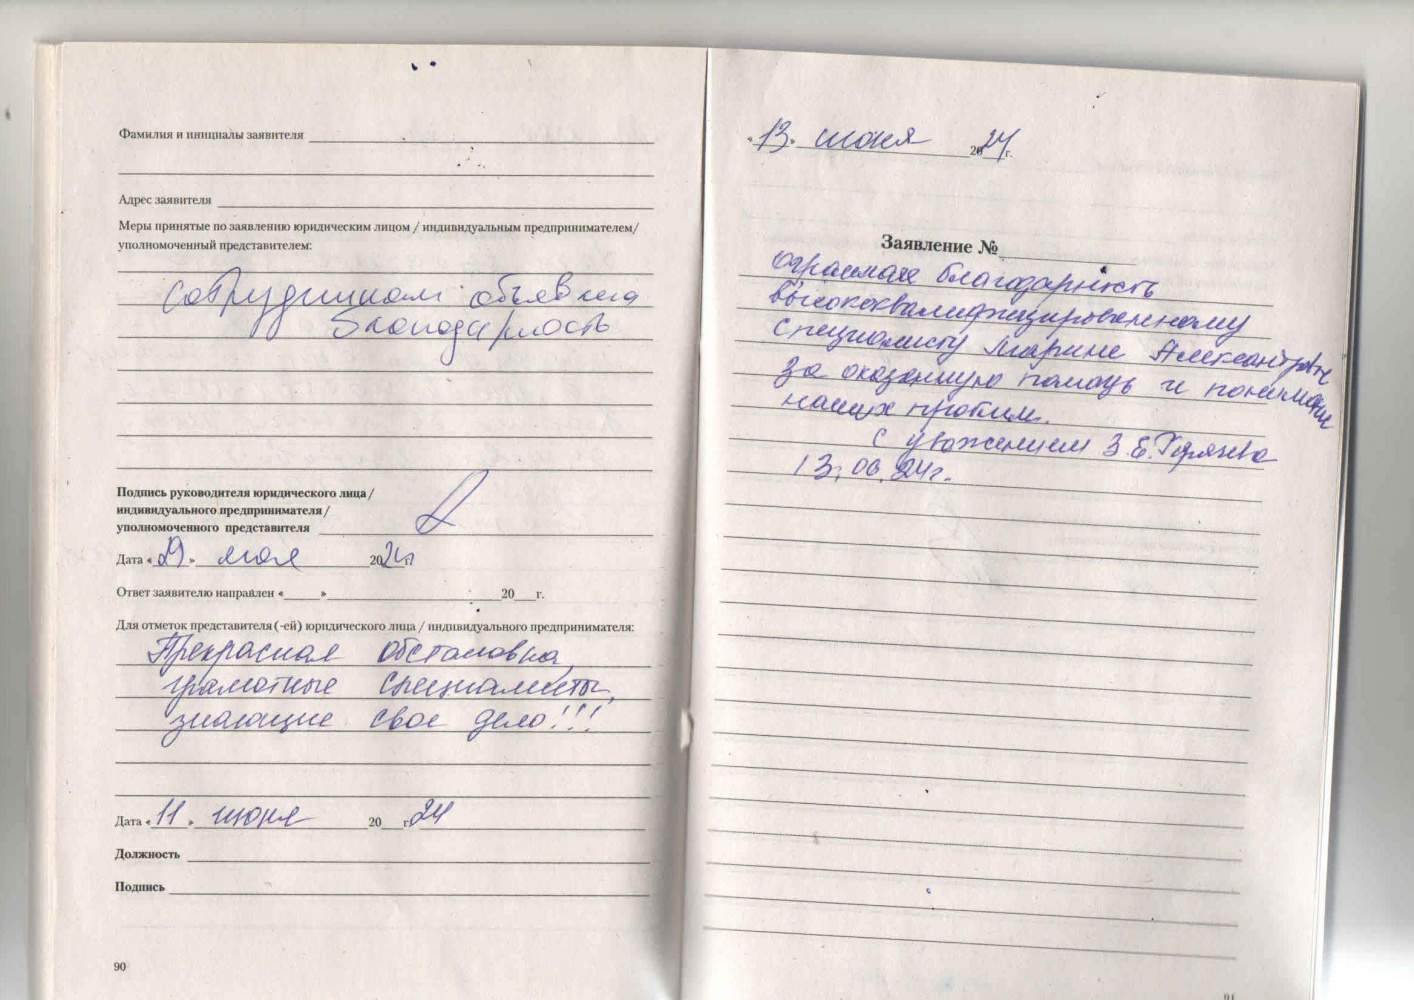 Фамилия и инициалы заявителя
Адрес заявителя
Меры принятые по заявлению юридическим лицом / индивидуальным предпринимателем/
уполномоченный представителем:
сотрудникам объявлена
благодарность
Подпись руководителя юридического лица /
индивидуального предпринимателя /
уполномоченного представителя
Дата «29» мая 2024
Ответ заявителю направлен «___»___20__г.
Для отметок представителя (-ей) юридического лица / индивидуального предпринимателя:
Прекрасная обстановка,
грамотные специалисты,
знающие свое дело!!!
Дата «11» июня 20__г. 24
Должность
Подпись
90
«13» июня 2024г.
Заявление №
огромная благодарность
высококвалифицированному
специалисту Марине
за оказанную помощь и понимание
наших проблем.
с уважением З.Е.
13.06.24г.
91